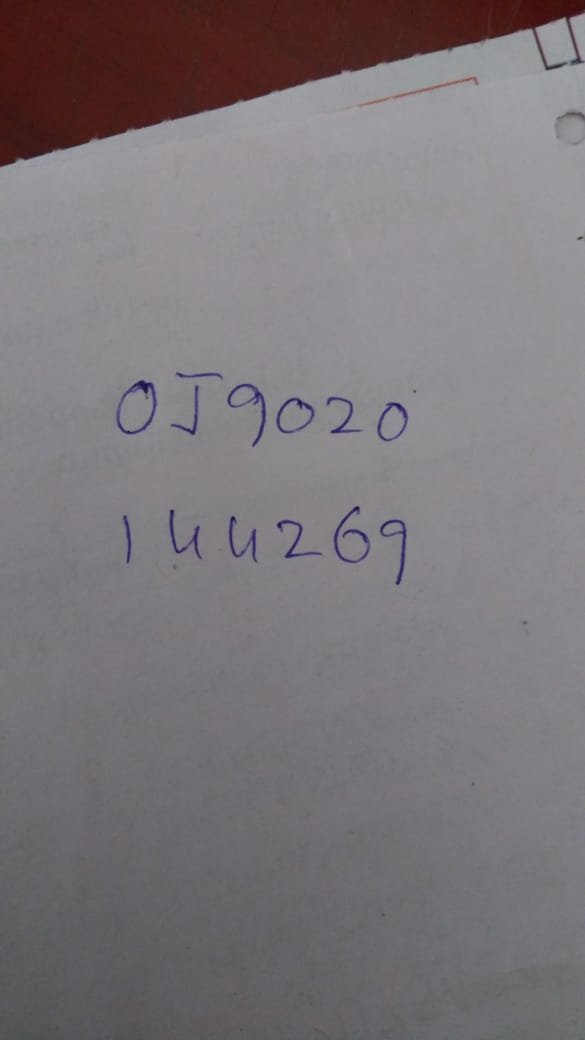 OJ9020
144269